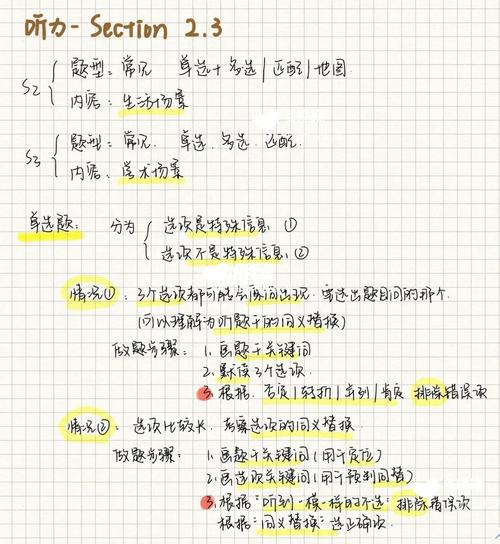 听力 - Section 2.3
S2 { 题型：常见 单选+多选|匹配|地图
内容：生活场景
S3 { 题型：常见 单选、多选、匹配
内容：学术场景
单选题： 分为 { 选项是特殊信息 ①
选项不是特殊信息 ②
情况①：3个选项都可能会原词出现，需选出题目问的那个
(可以理解为听题干的同义替换)
做题步骤： 1. 画题干关键词
2. 默读3个选项
3. 根据 否定|转折|序列|肯定 排除错误项
情况②：选项比较长，考察选项的同义替换
做题步骤： 1. 画题干关键词(用于定位)
2. 画选项关键词(用于预判同替)
3. 根据"听到一模一样的不选" 排除错误项
根据"同义替换"选正确项